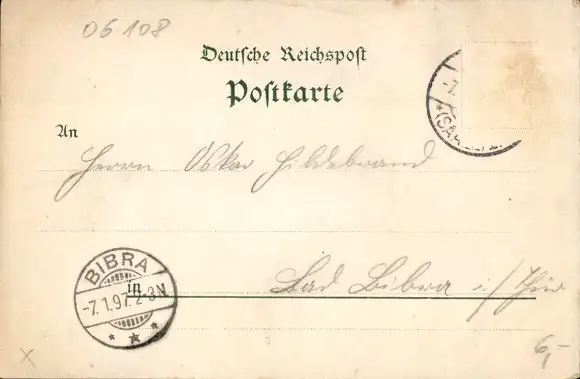 06108
Deutsche Reichspost
Postkarte
An
Herrn Oskar Hildebrand
in Bad Bibra i/Thür
BIBRA
-7.1.97. 2-3N
* * *
-7.
*(SA
6,-
X